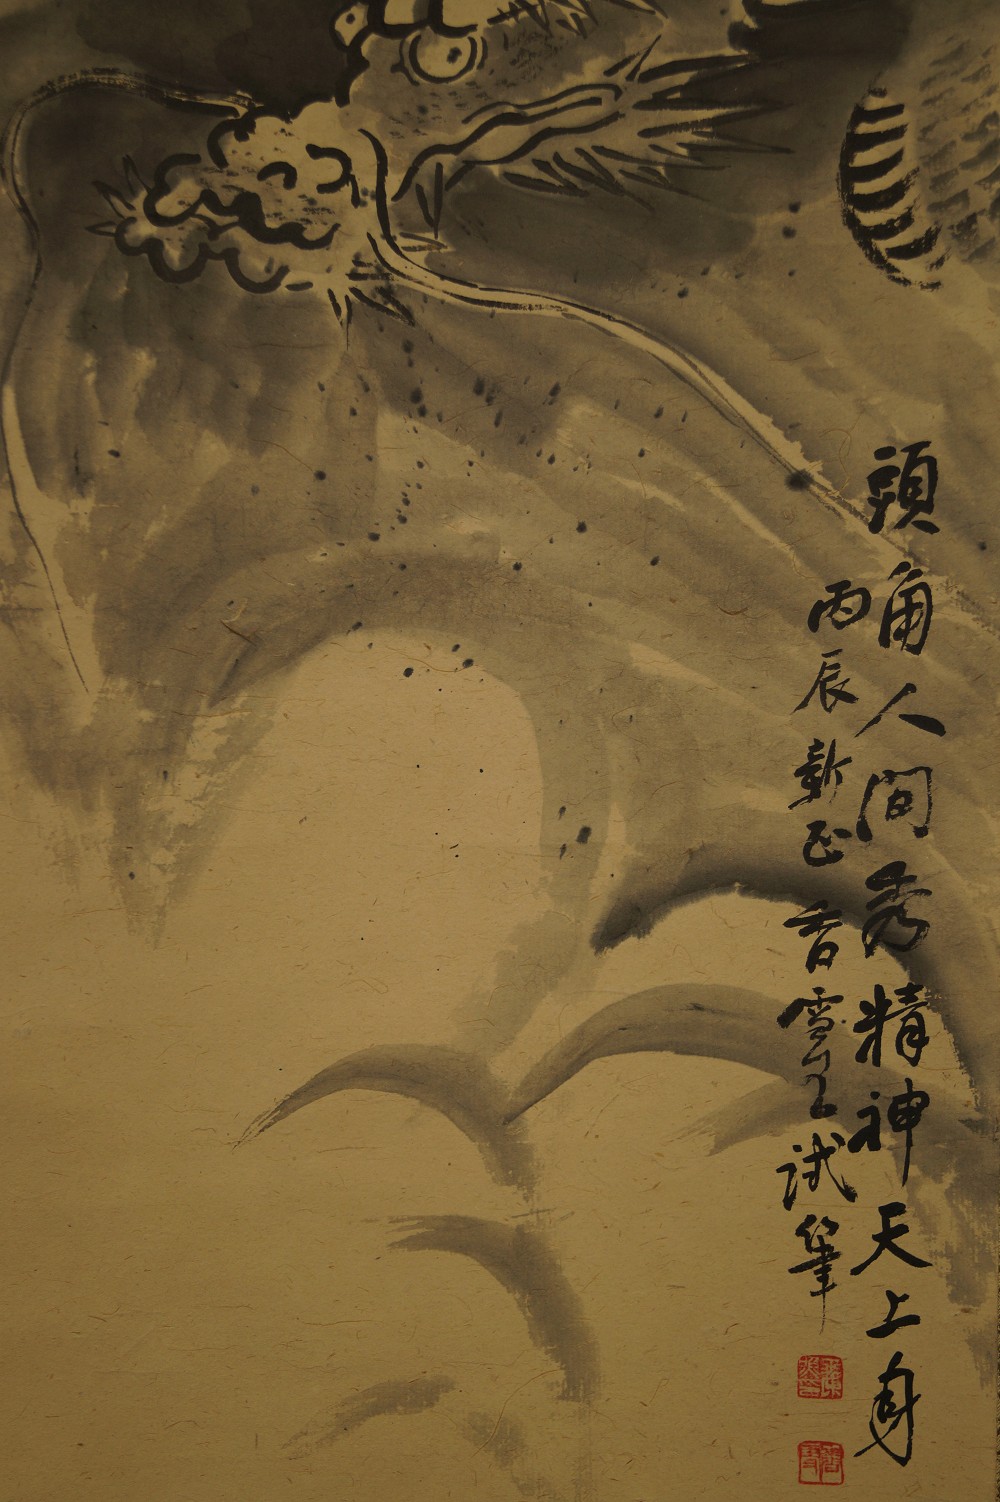 頭角人間秀精神天上身
丙辰新正香雪試筆